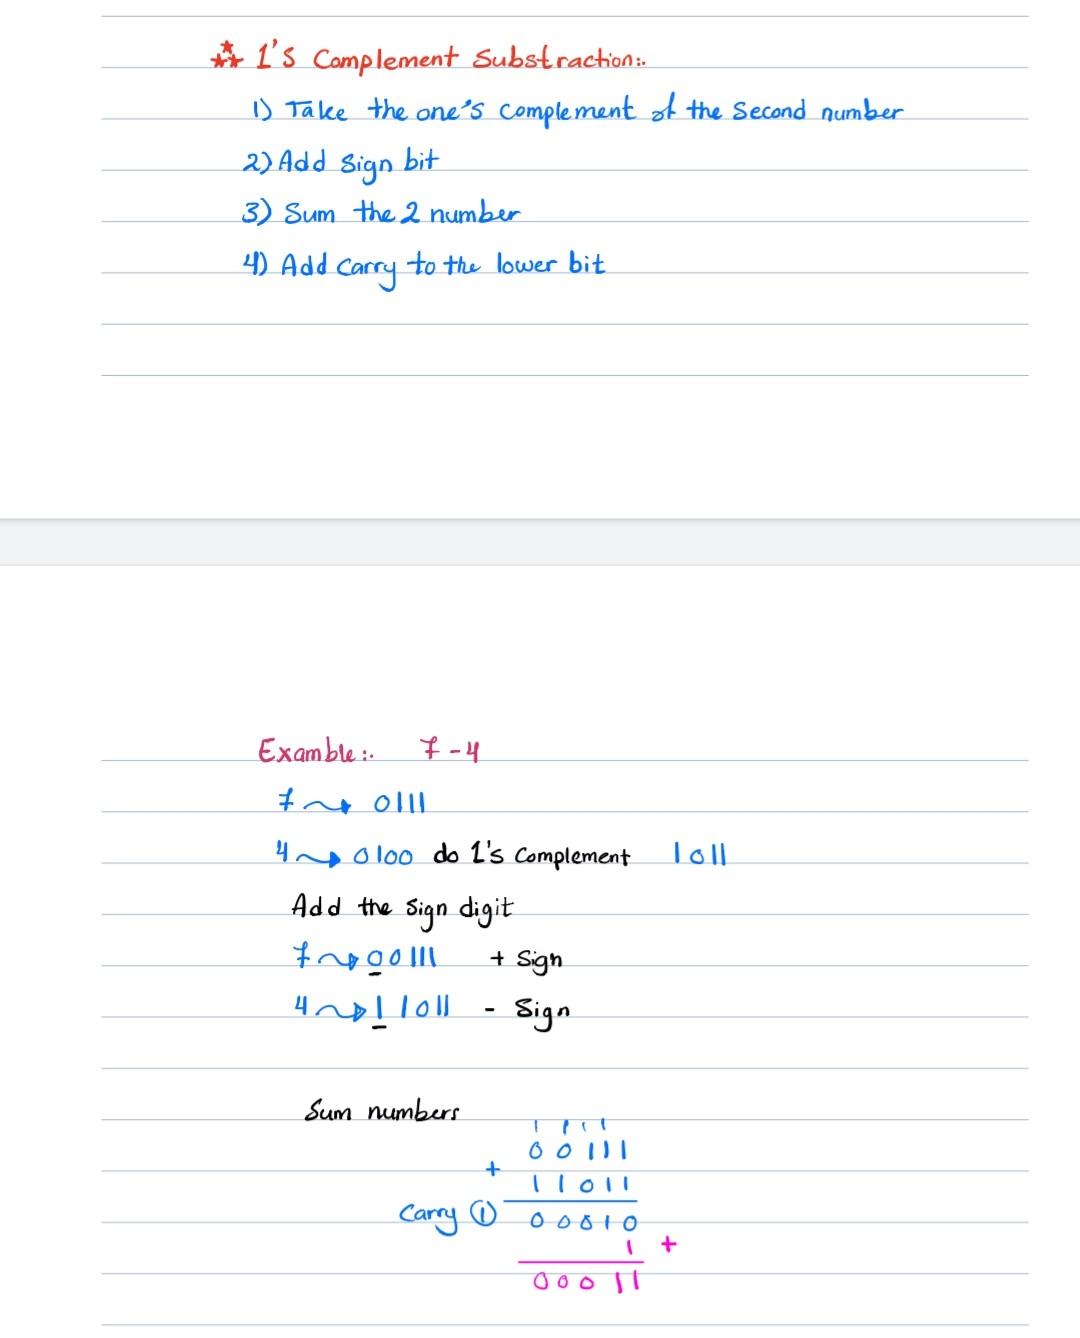 1's Complement Substraction:.
1) Take the one's complement of the second number
2) Add sign bit
3) Sum the 2 number
4) Add carry to the lower bit
Examble:. 7-4
7 → 0111
4 → 0100 do 1's complement 1011
Add the sign digit
7 → 00111 + Sign
4 → 11011 - Sign
Sum numbers
1 1 1 1
0 0 1 1 1
+
1 1 0 1 1
Carry ① 0 0 0 1 0
1 +
0 0 0 1 1